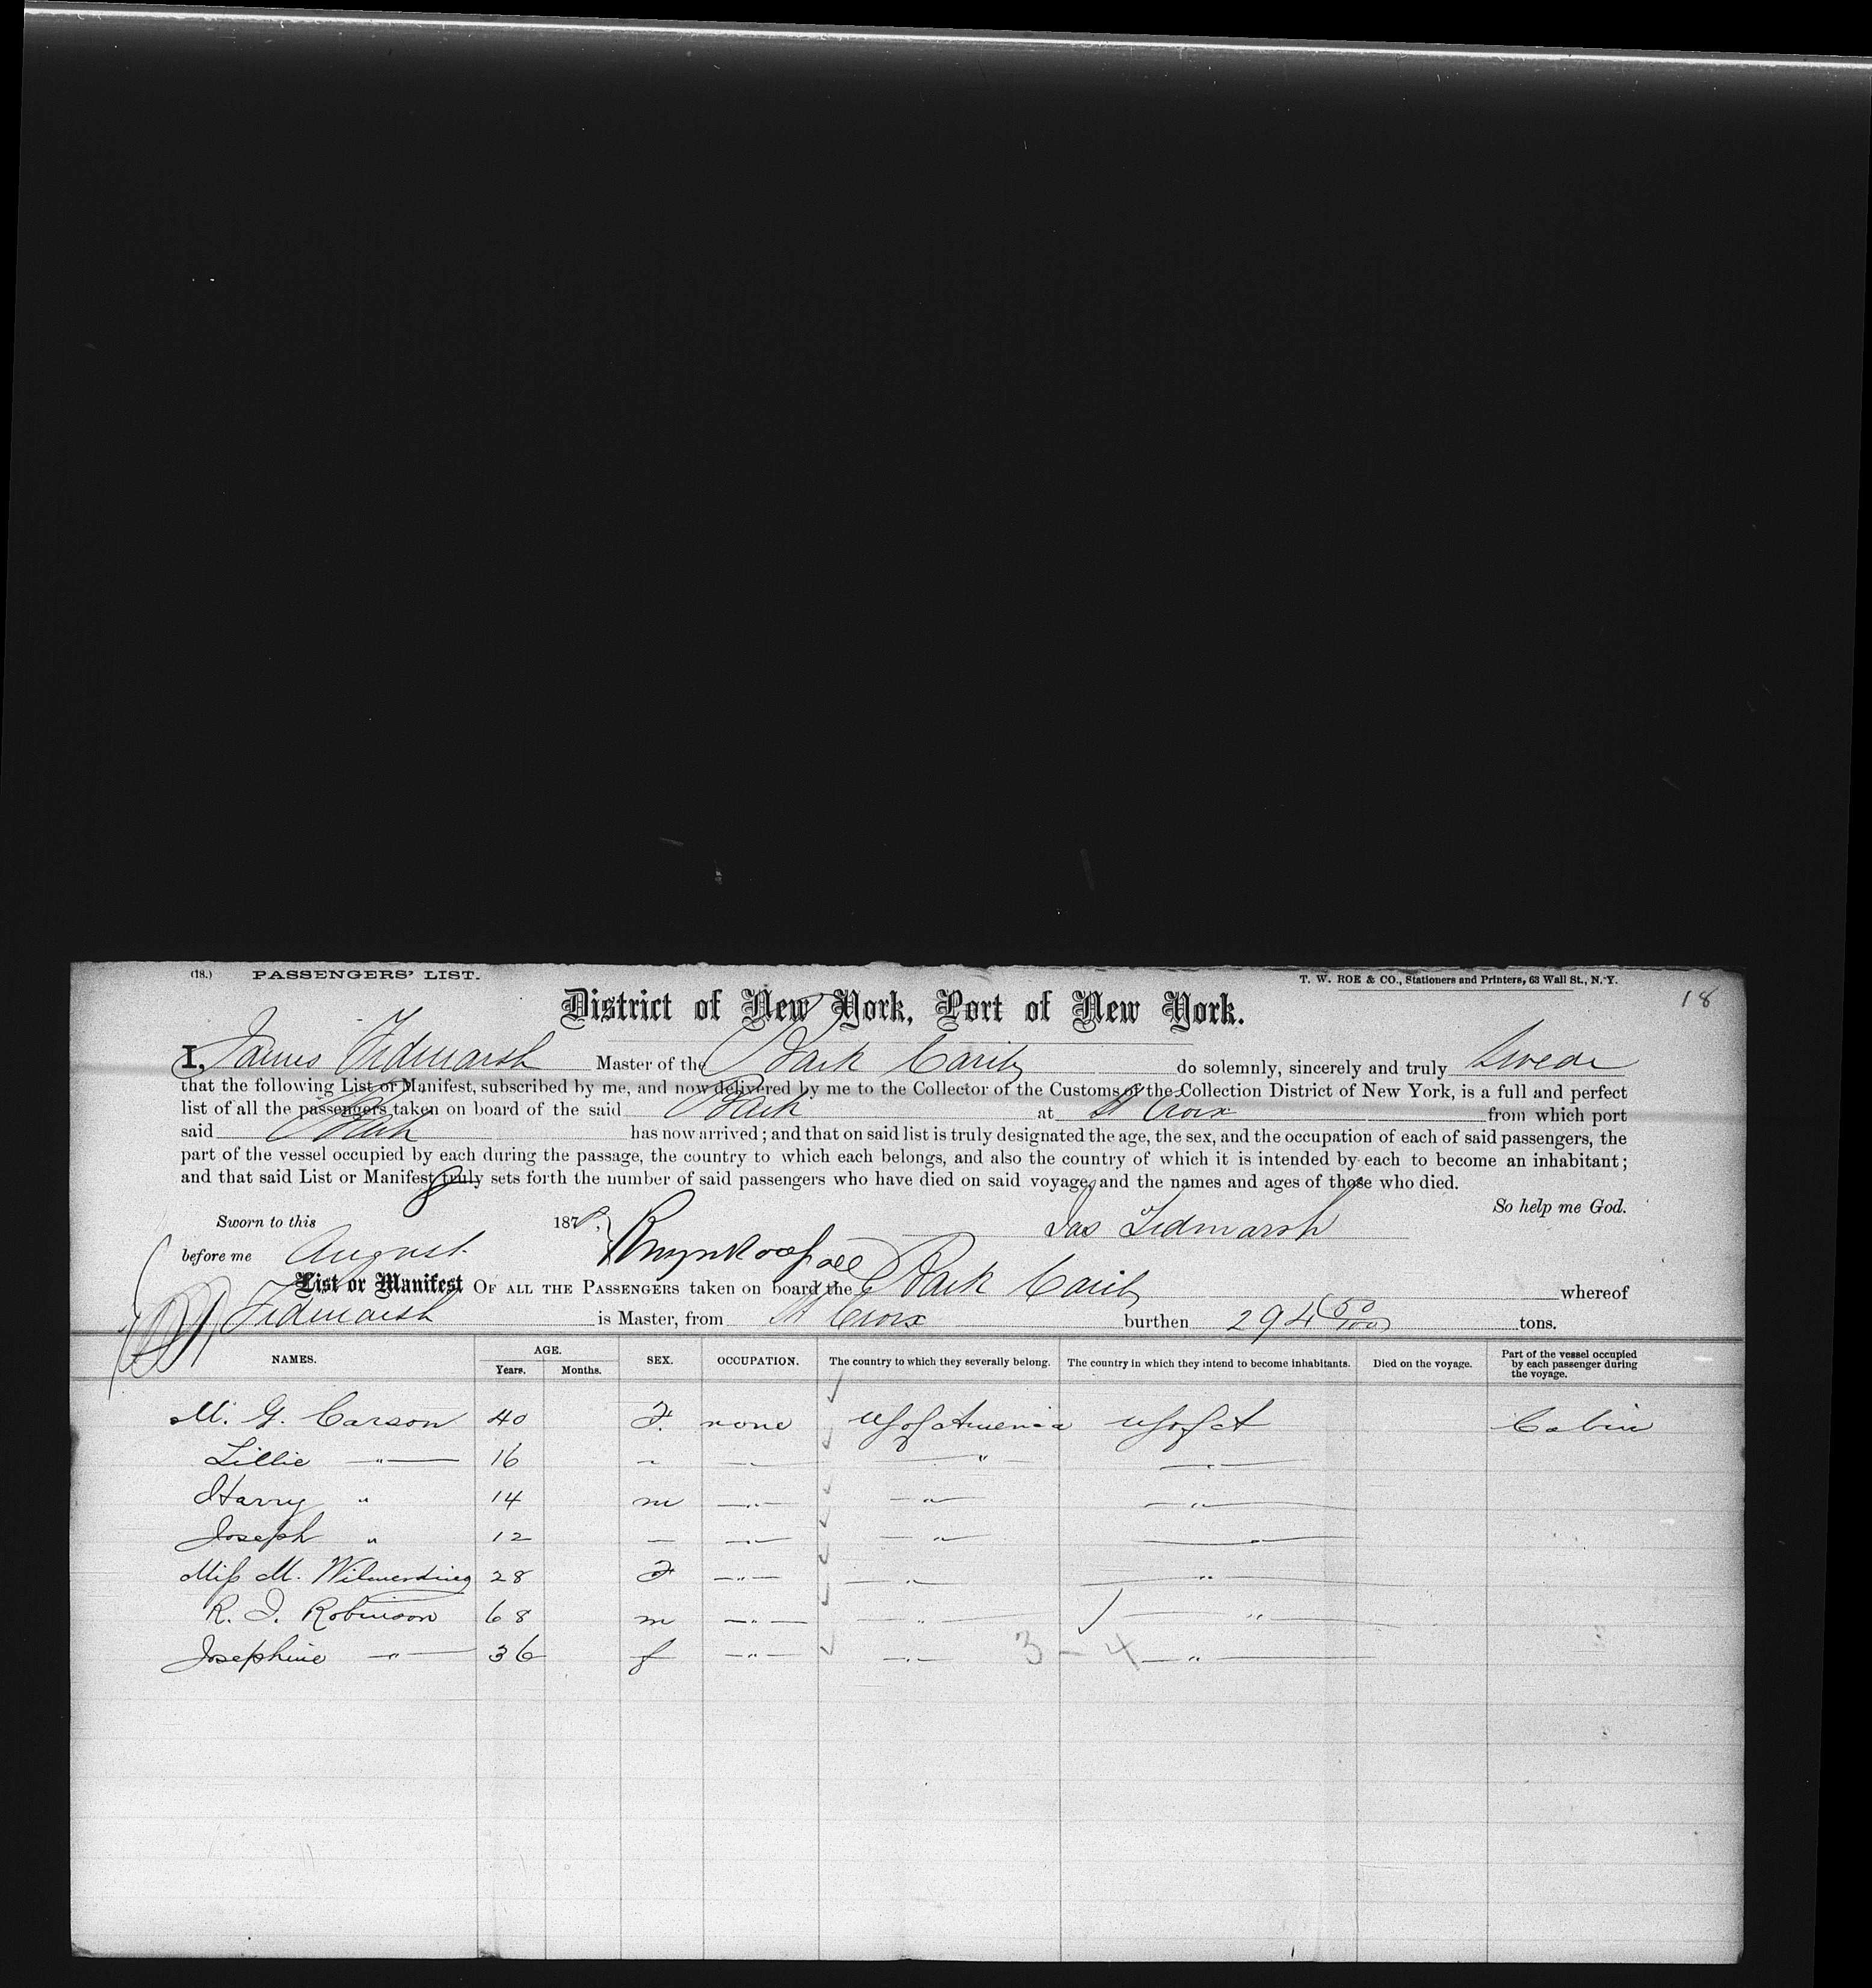 (18.) PASSENGERS' LIST. T. W. ROE & CO., Stationers and Printers, 63 Wall St., N. Y.
18
District of New York, Port of New York.
I, James Tidmarsh Master of the Bark Carib do solemnly, sincerely and truly Swear
that the following List or Manifest, subscribed by me, and now delivered by me to the Collector of the Customs of the Collection District of New York, is a full and perfect
list of all the passengers taken on board of the said Bark at St Croix from which port
said Bark has now arrived; and that on said list is truly designated the age, the sex, and the occupation of each of said passengers, the
part of the vessel occupied by each during the passage, the country to which each belongs, and also the country of which it is intended by each to become an inhabitant;
and that said List or Manifest truly sets forth the number of said passengers who have died on said voyage, and the names and ages of those who died.
So help me God.
Sworn to this 8 187 Jas Tidmarsh
before me August
List or Manifest OF ALL THE PASSENGERS taken on board the Bark Carib whereof
Tidmarsh is Master, from St Croix burthen 294 50/100 tons.
NAMES. AGE. Years. Months. SEX. OCCUPATION. The country to which they severally belong. The country in which they intend to become inhabitants. Died on the voyage. Part of the vessel occupied by each passenger during the voyage.
M. G. Carson 40 F. none US of America US of A Cabin
Lillie " 16 " " " "
Harry " 14 m " " "
Joseph " 12 — " " "
Miss M. Wilmerding 28 F " " "
R. I. Robinson 68 m " " "
Josephine " 36 f " " 3 - 4 "